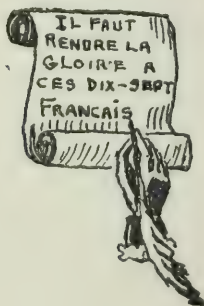 IL FAUT
RENDRE LA
GLOIRE A
CES DIX-SEPT
FRANCAIS